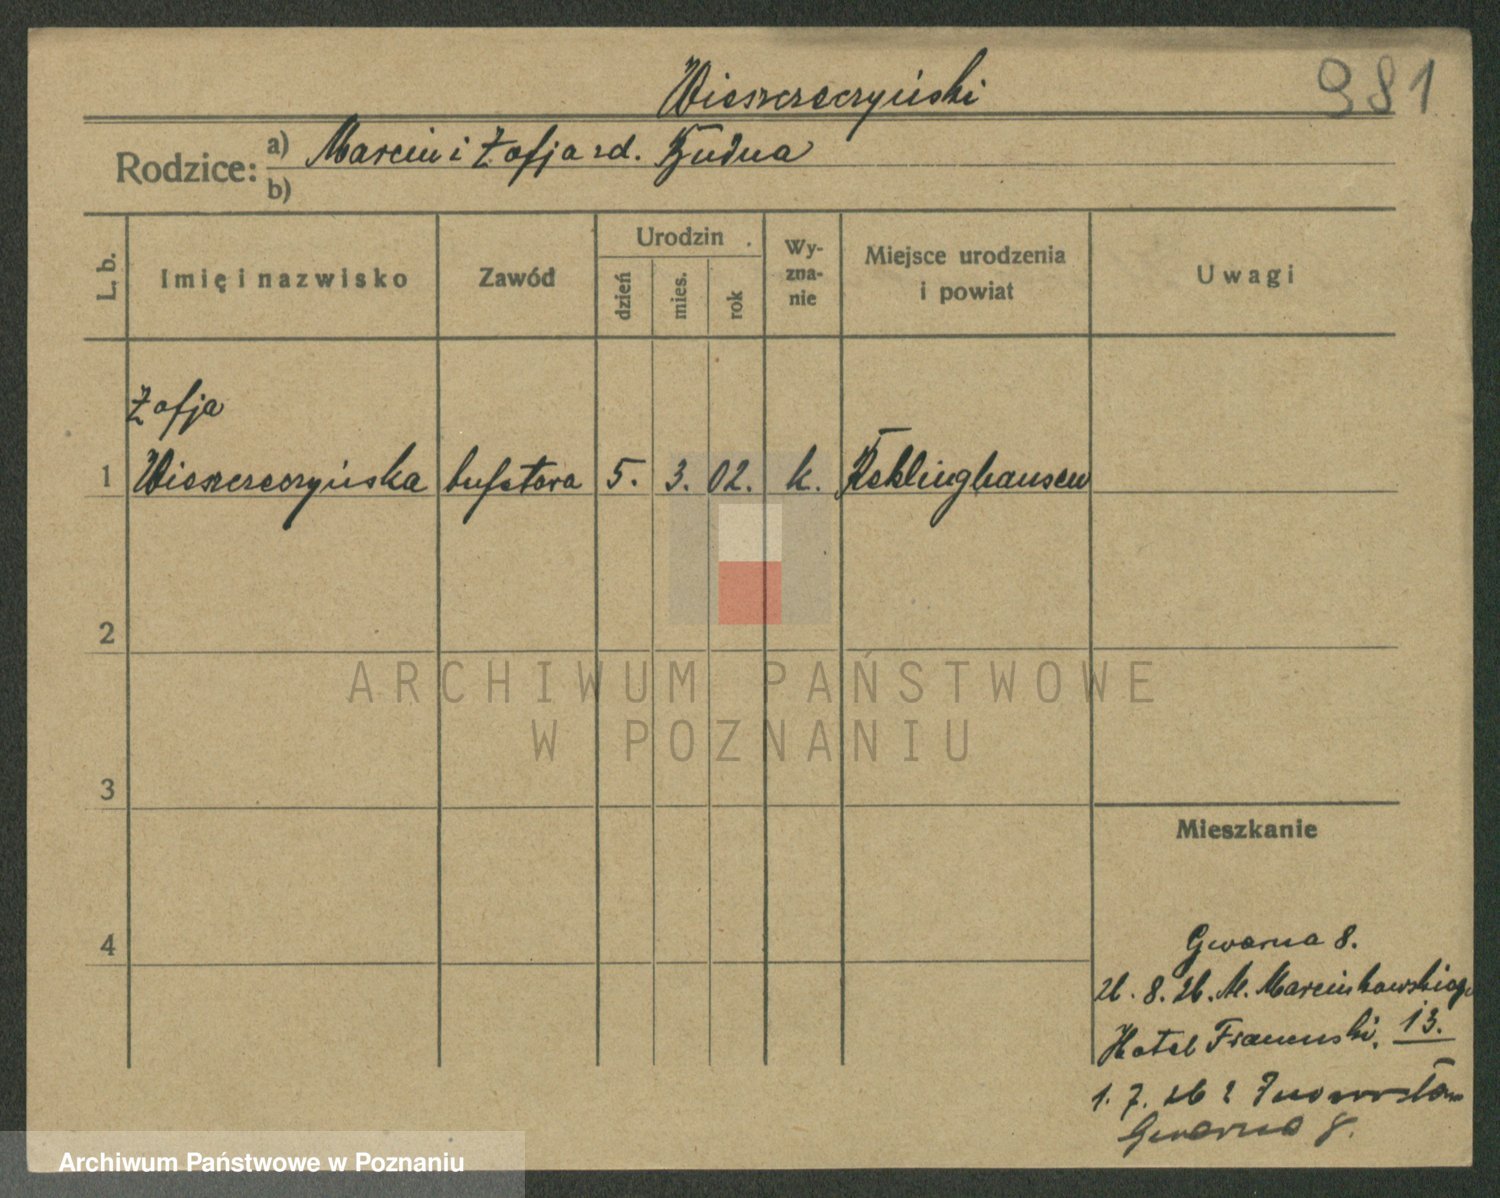 Wieszczeczyński
981
Rodzice:
a) Marcin i Zofja zd.
b)
L. b.
Imię i nazwisko
Zawód
Urodzin
dzień
mies.
rok
Wy-
zna-
nie
Miejsce urodzenia
i powiat
Uwagi
Zofja
1 Wieszczeczyńska bufetowa 5. 3. 02. k. Reklinghausen
2
3
4
ARCHIWUM PAŃSTWOWE
W POZNANIU
Mieszkanie
Gwarna 8.
26. 8. 26. M. Marcinkowskiego
Hotel Francuski. 13.
1. 7. 26 z Inowrocław
Gwarna 8.
Archiwum Państwowe w Poznaniu